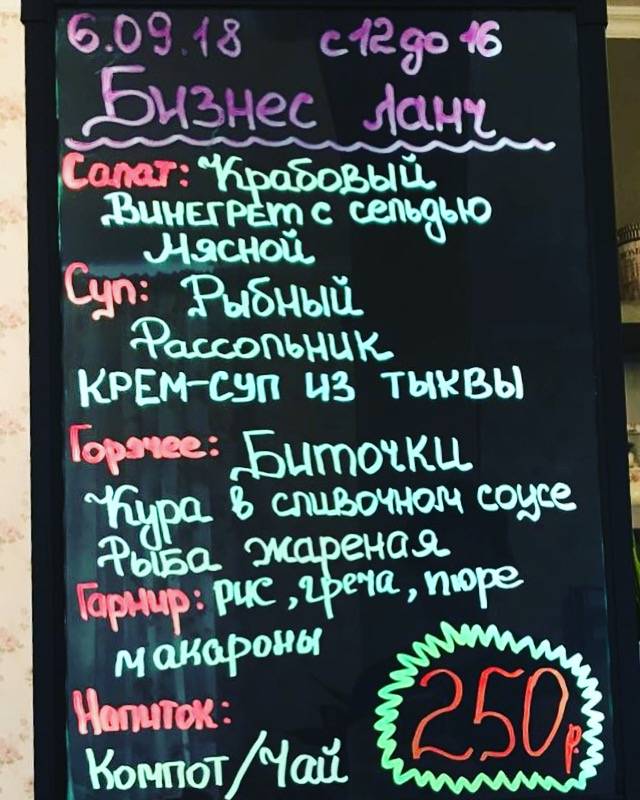 6.09.18 с 12 до 16
Бизнес ланч
Салат: Крабовый
Винегрет с сельдью
Мясной
Суп: Рыбный
Рассольник
КРЕМ-СУП ИЗ ТЫКВЫ
Горячее: Биточки
Кура в сливочном соусе
Рыба жареная
Гарнир: рис, греча, пюре
макароны
Напиток:
Компот/Чай
250р.